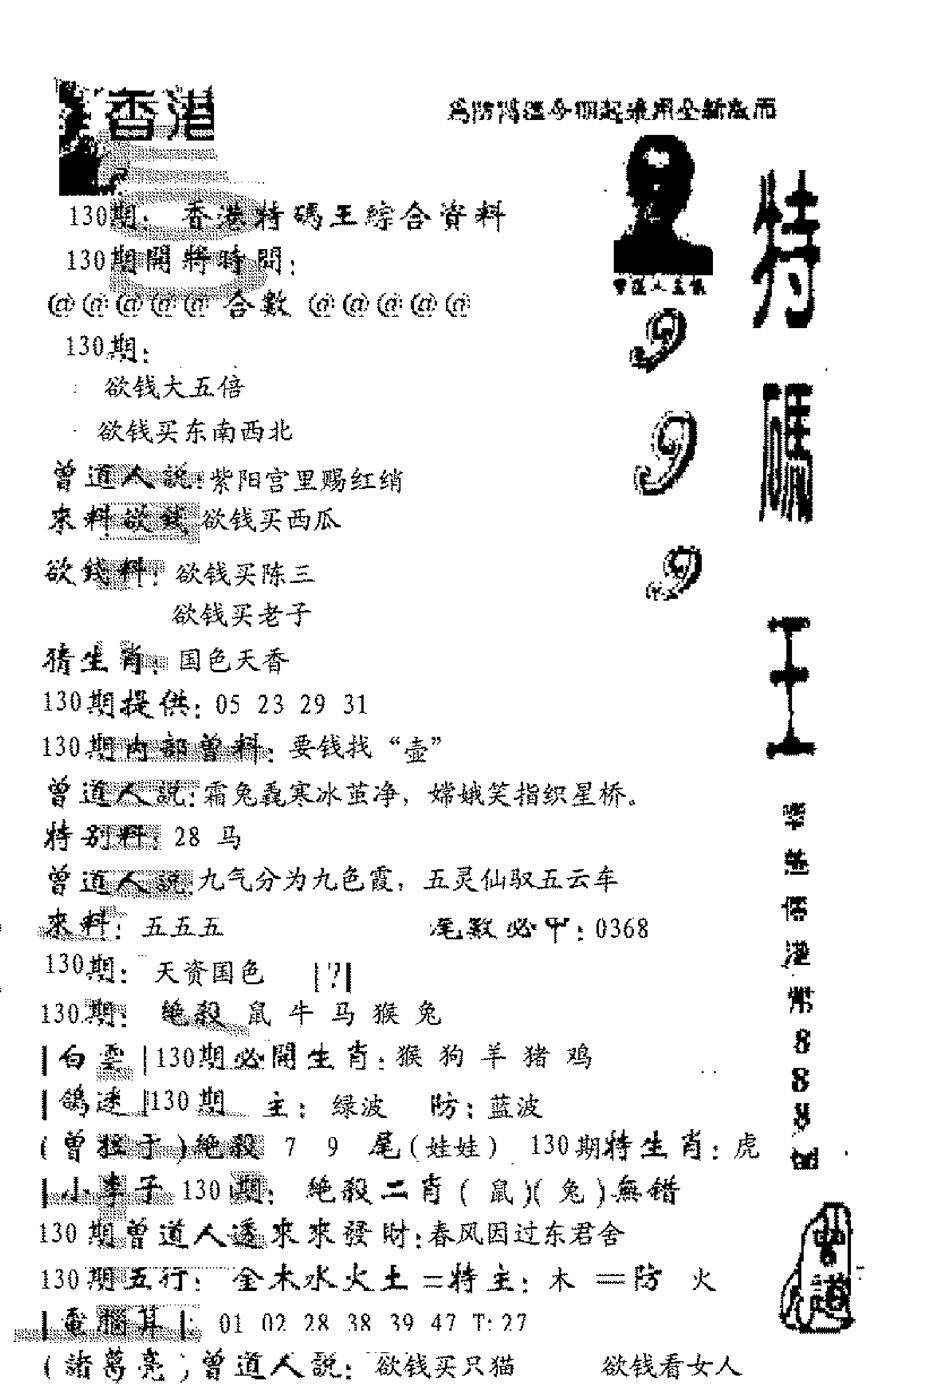 香港
為防偽造今期起采用全新版面
130期: 香港特碼王綜合資料
130期開將時間:
@@@@@ 合數 @@@@@
130期:
欲钱大五倍
欲钱买东南西北
曾道人説:紫阳宫里赐红绡
來料欲钱 欲钱买西瓜
欲錢料: 欲钱买陈三
欲钱买老子
猜生肖: 国色天香
130期提供: 05 23 29 31
130期内部曾料: 要钱找“壶”
曾道人説:霜兔毳寒冰茧净,嫦娥笑指织星桥。
特别料: 28 马
曾道人説:九气分为九色霞,五灵仙驭五云车
來料: 五五五 尾数必中:0368
130期: 天资国色 |?|
130期: 絶殺 鼠 牛 马 猴 兔
|白雲|130期必開生肖:猴 狗 羊 猪 鸡
|鴿迷|130期 主: 绿波 防:蓝波
(曾孩子)絶殺 7 9 尾(娃娃) 130期特生肖:虎
|小李子 130期: 絶殺二肖(鼠)(兔)無错
130期曾道人透來來發财:春风因过东君舍
130期五行: 金木水火土=特主: 木 =防 火
|電腦算|: 01 02 28 38 39 47 T:27
(諸葛亮)曾道人説: 欲钱买只猫 欲钱看女人
曾道人主佩
9
9
9
特
碼
王
港
幣
8
8
8
曾道